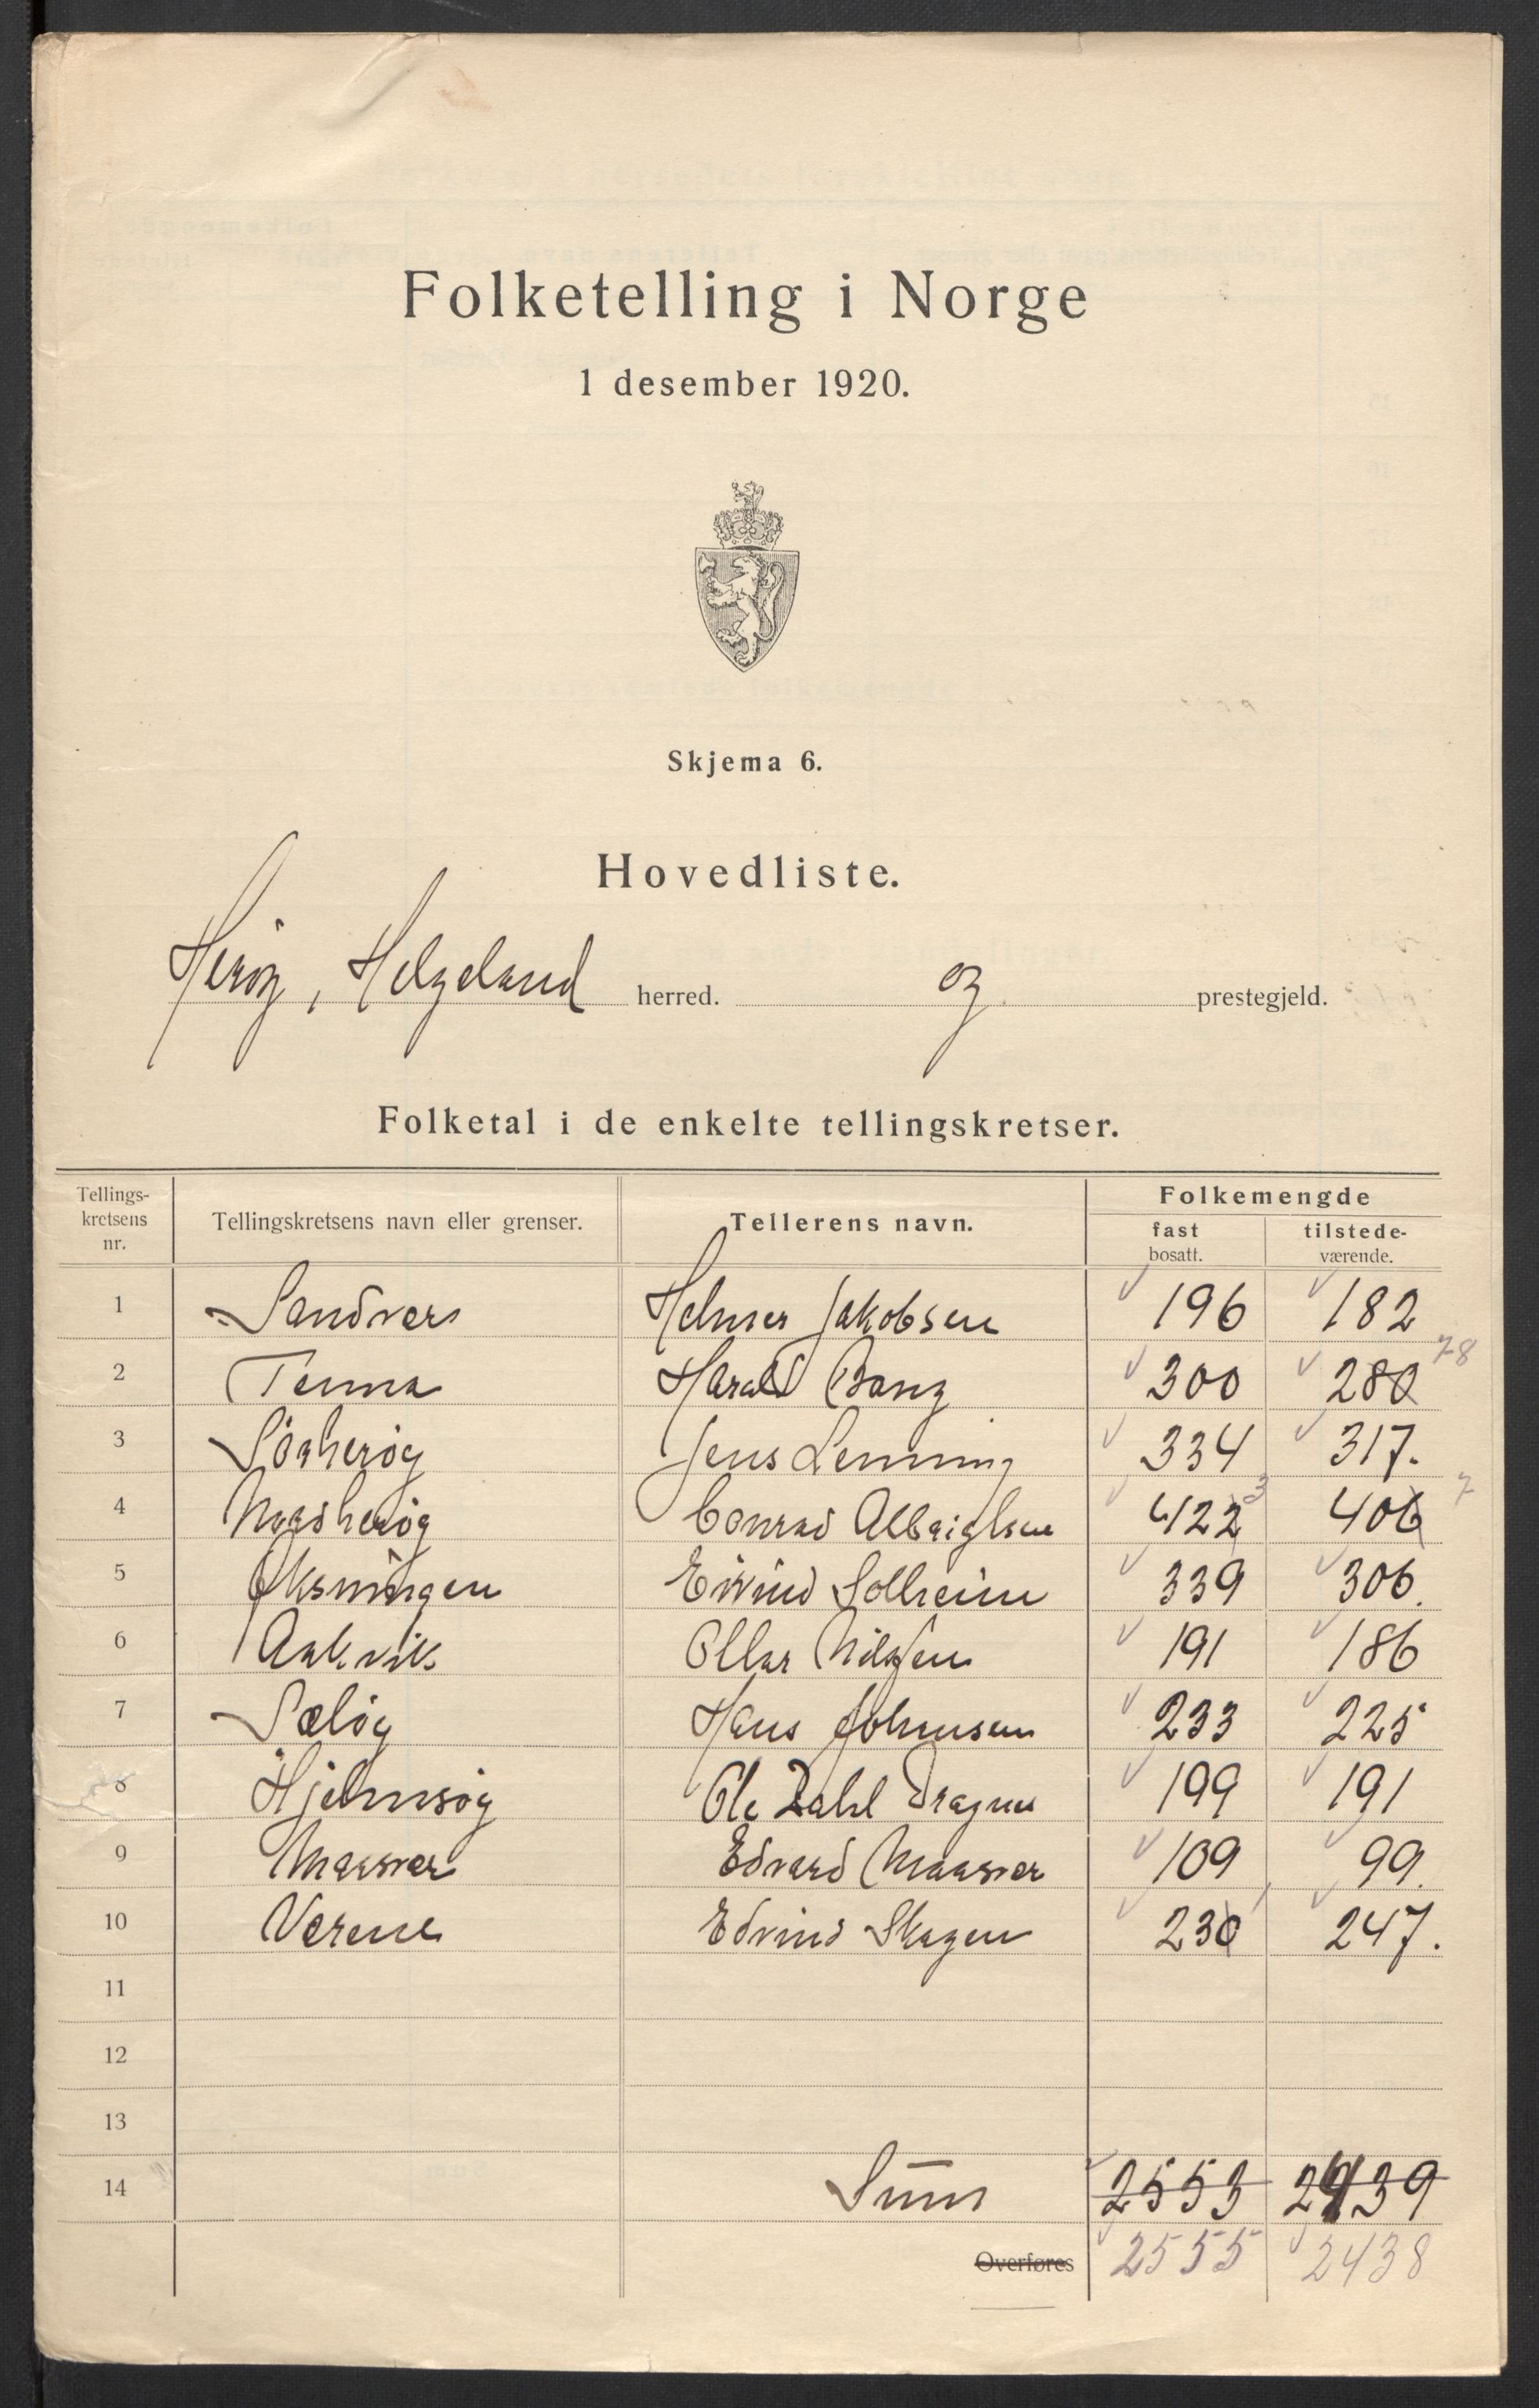 Folketelling i Norge
1 desember 1920.
Skjema 6.
Hovedliste.
Herøy, Helgeland herred. og prestegjeld.
Folketal i de enkelte tellingskretser.
Tellings-kretsens nr. Tellingskretsens navn eller grenser. Tellerens navn. Folkemengde fast bosatt. tilstede-værende.
1 Sandvær Helmer Jakobsen 196 182
2 Tenna Harald Bang 300 280 78
3 Sørherøy Jens Lenning 334 317.
4 Nordherøy Conrad Albrigtsen 422 3 406 7
5 Øksningen Eivind Solheim 339 306.
6 Aakvik Ottar Nilssen 191 186
7 Sæløy Hans Johnsen 233 225
8 Hjelmsøy Ole Dahl 199 191
9 Maasvær Edvard Maasvær 109 99.
10 Værene Edvind Skagen 230 1 247.
11
12
13
14 Sum 2553 2439
Overføres 2555 2438